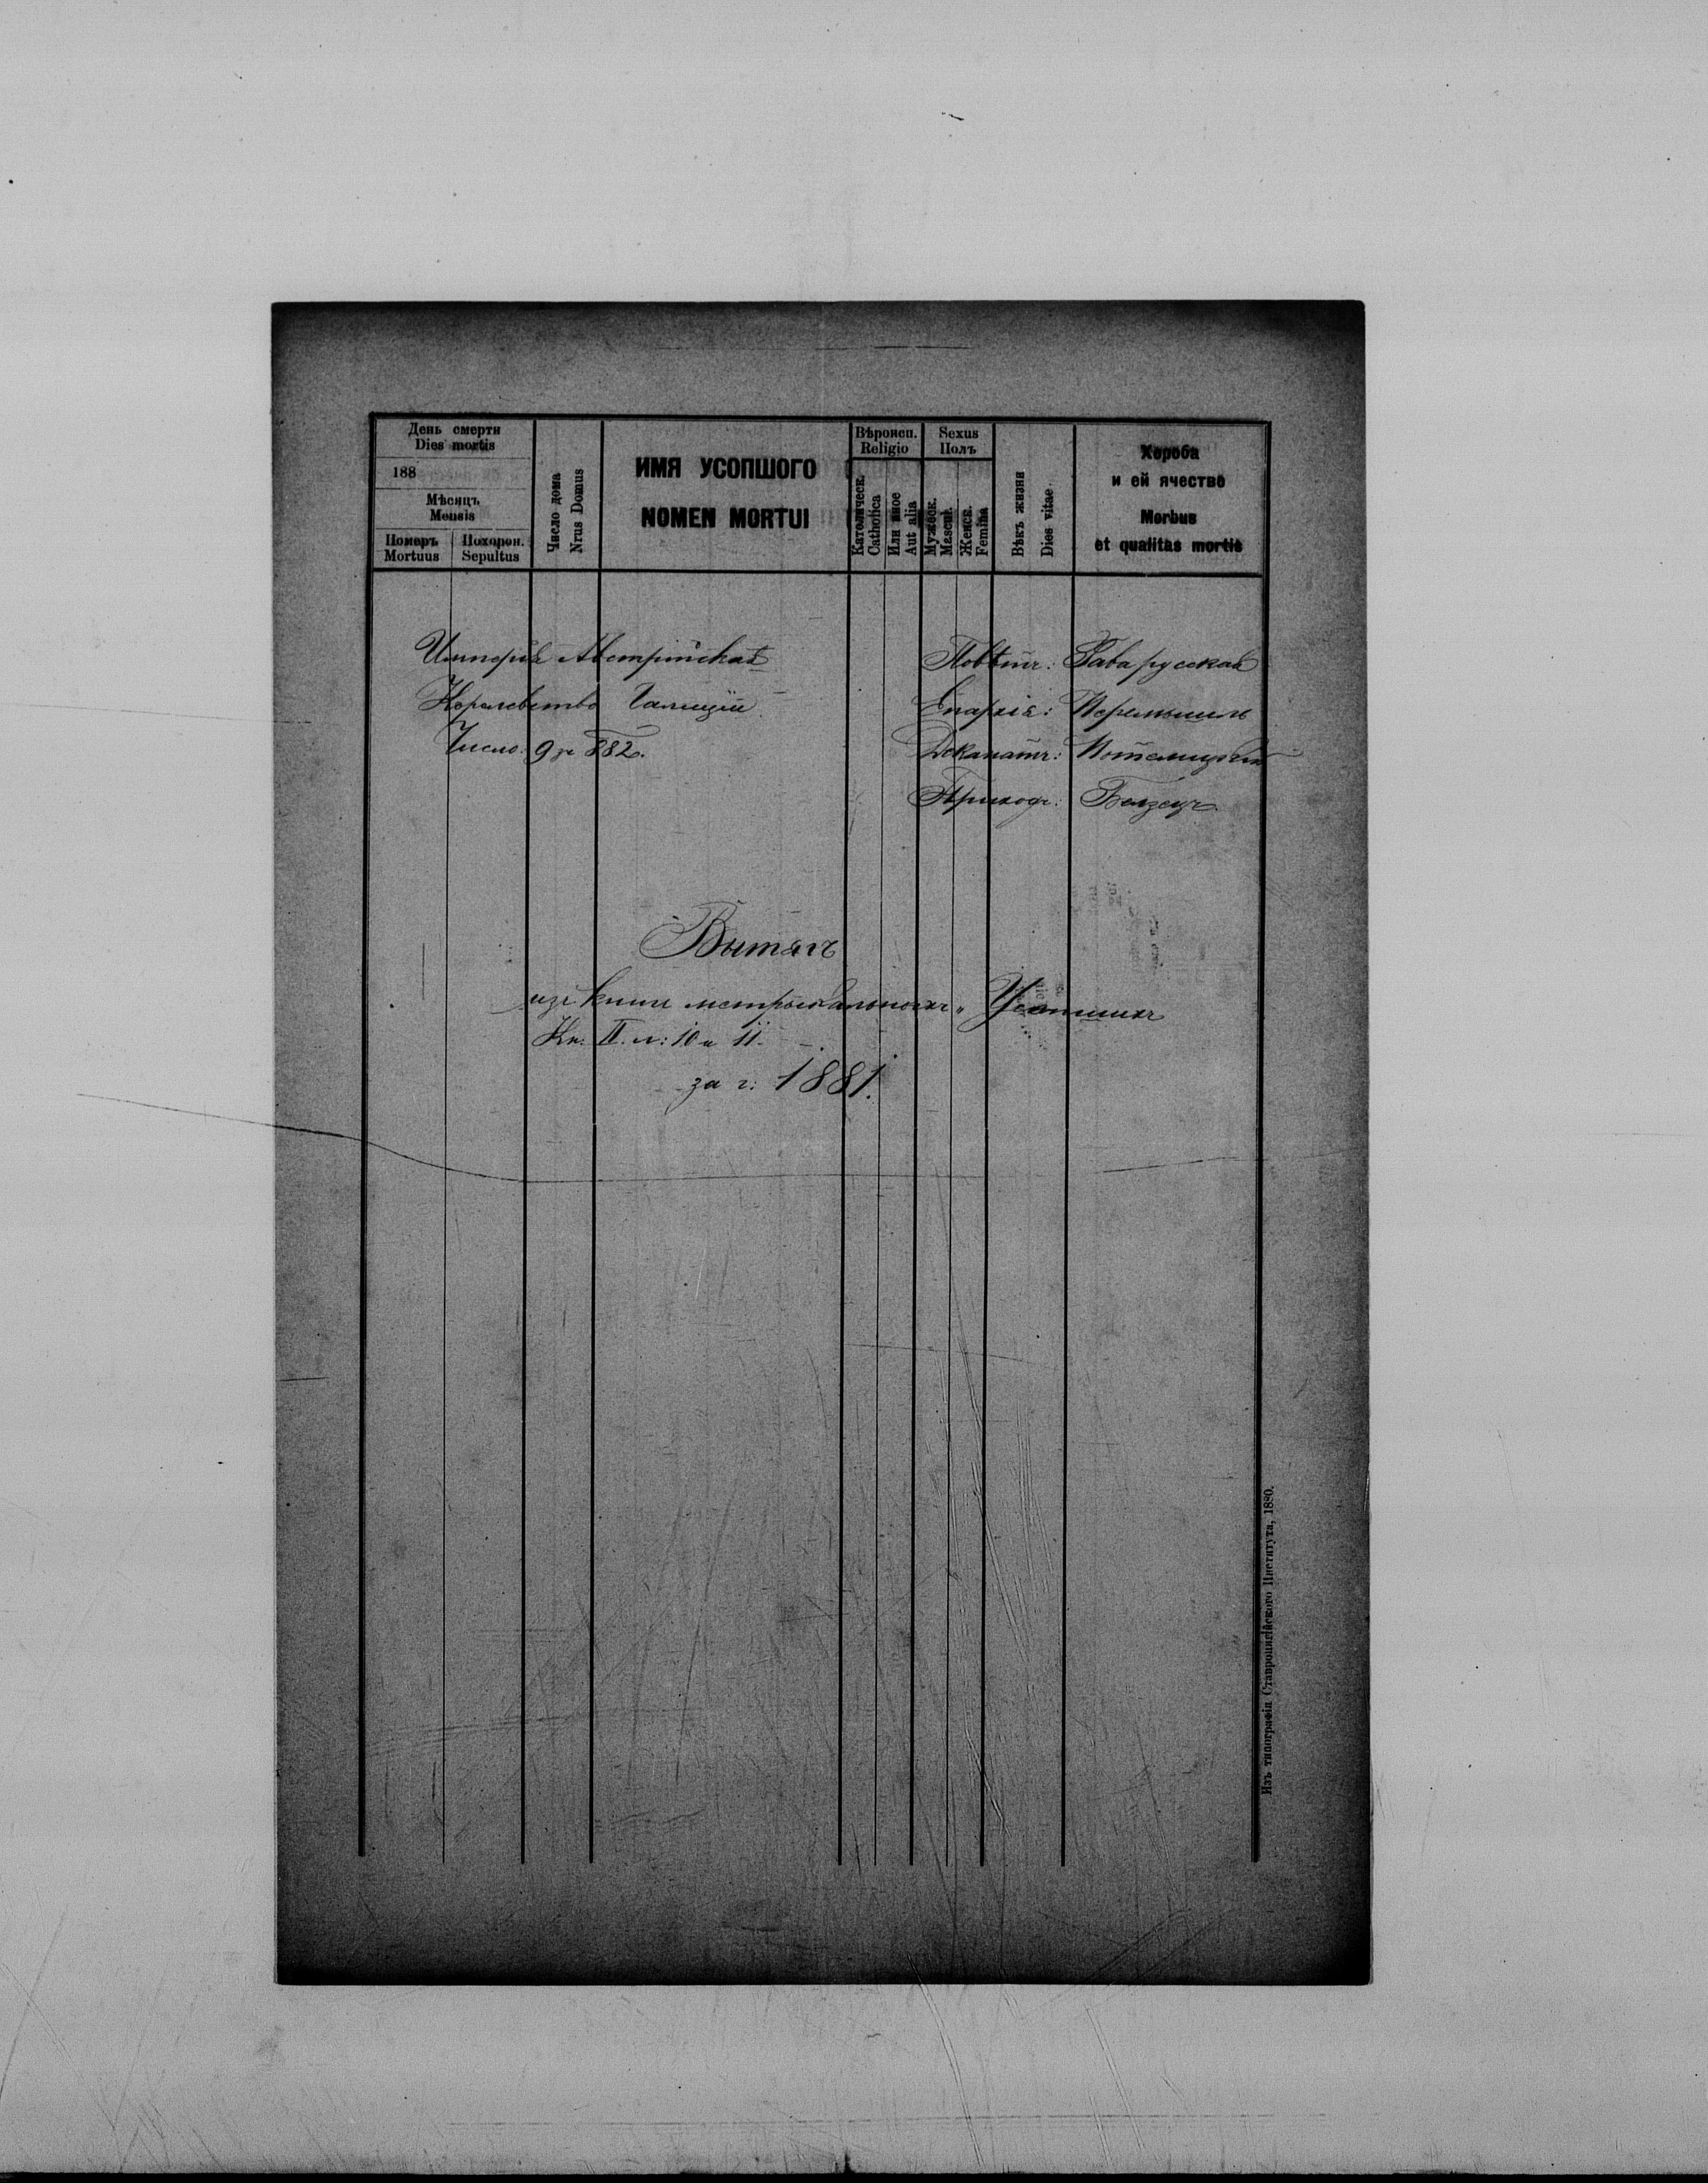 День смерти
Dies mortis
188
Мѣсяцъ
Mensis
Номеръ
Mortuus
Похорон.
Sepultus
Число дома
Nrus Domus
ИМЯ УСОПШОГО
NOMEN MORTUI
Вѣроисп.
Religio
Католическ.
Catholica
Или иное
Aut alia
Sexus
Полъ
Мужеск.
Mascul.
Женск.
Femina
Вѣкъ жизни
Dies vitae
Хороба
и ей ячество
Morbus
et qualitas mortis
Имперія Австрійская
Королевство Галиція
Число: 9 зъ 882.
Повѣтъ: Рава русская
Епархія: Перемышль
Деканатъ: Потелицкій
Приходъ: Белзецъ.
Вытягъ
изъ книгъ метрыкальныхъ „ Усопшихъ
Кн. II. л: 10 и 11.
за г: 1881.
Изъ типографіи Ставропигійского Института, 1880.